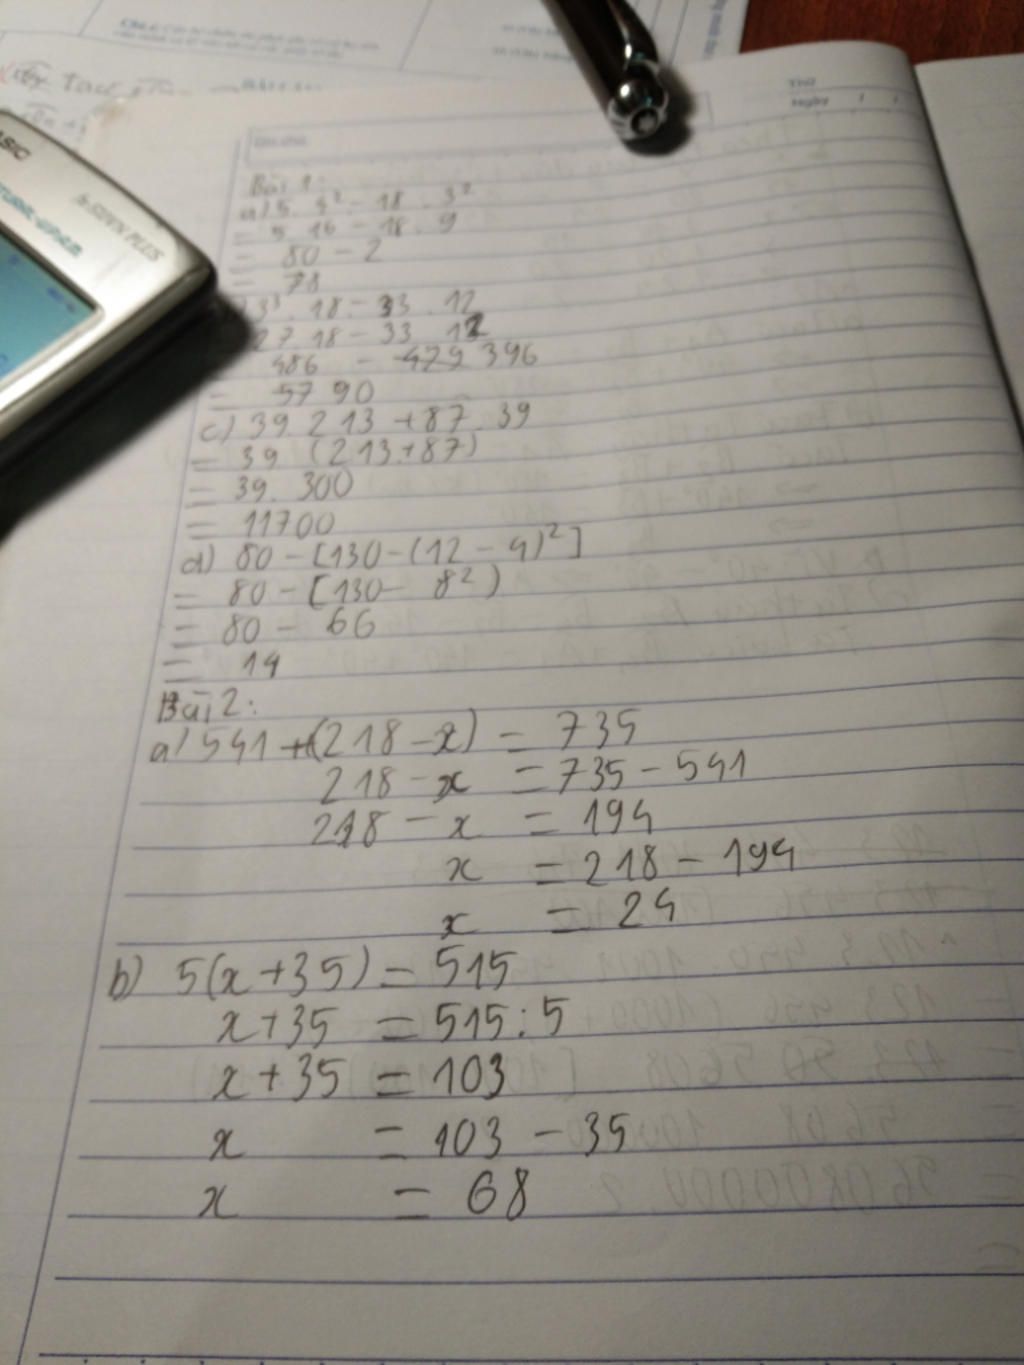 Thứ
Ngày / /
fx-570VN PLUS
Bài 1:
a) 5. 4² - 18 . 3²
= 5 16 - 18 . 9
= 80 - 2
= 78
3³. 18 - 33 . 12
27. 18 - 33 12
486 - 429 396
= 57 90
c) 39. 213 + 87. 39
= 39 (213 + 87)
= 39. 300
= 11700
d) 80 - [130 - (12 - 4)²]
= 80 - [130 - 8²)
= 80 - 66
= 14
Bài 2:
a) 541 + (218 - x) = 735
218 - x = 735 - 541
218 - x = 194
x = 218 - 194
x = 24
b) 5(x + 35) = 515
x + 35 = 515 : 5
x + 35 = 103
x = 103 - 35
x = 68